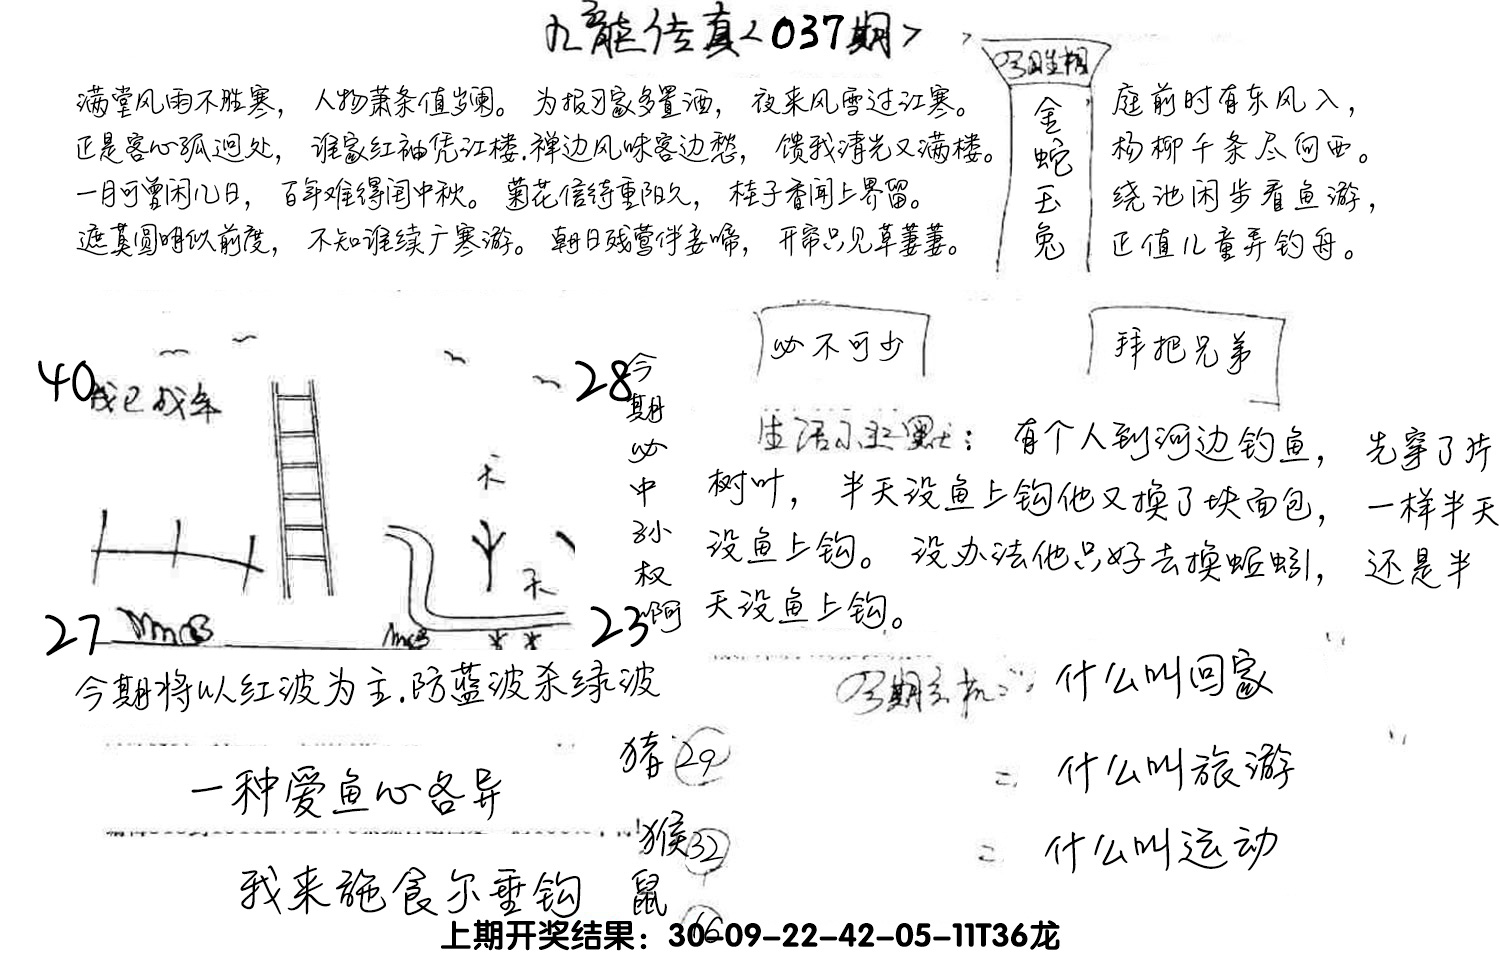 九龙传真<037期>
今期生相
金蛇玉兔
满堂风雨不胜寒，人物萧条值岁阑。为报习家多置酒，夜来风雪过江寒。
正是客心孤迥处，谁家红袖凭江楼.禅边风味客边愁，馈我清光又满楼。
一月可曾闲几日，百年难得闰中秋。菊花信待重阳久，桂子香闻上界留。
遮莫圆明似前度，不知谁续广寒游。朝日残莺伴妾啼，开帘只见草萋萋。
庭前时有东风入，
杨柳千条尽向西。
绕池闲步看鱼游，
正值儿童弄钓舟。
必不可少
拜把兄弟
40
28
27
23
天
天
今期必中孙权啊
生活幽默：有个人到河边钓鱼，先穿了片
树叶，半天没鱼上钩他又换了块面包，一样半天
没鱼上钩。没办法他只好去换蚯蚓，还是半
天没鱼上钩。
今期将以红波为主.防蓝波杀绿波
一种爱鱼心各异
我来施食尔垂钩
猪29
猴32
鼠16
今期玄机：什么叫回家
什么叫旅游
什么叫运动
上期开奖结果：30-09-22-42-05-11T36龙